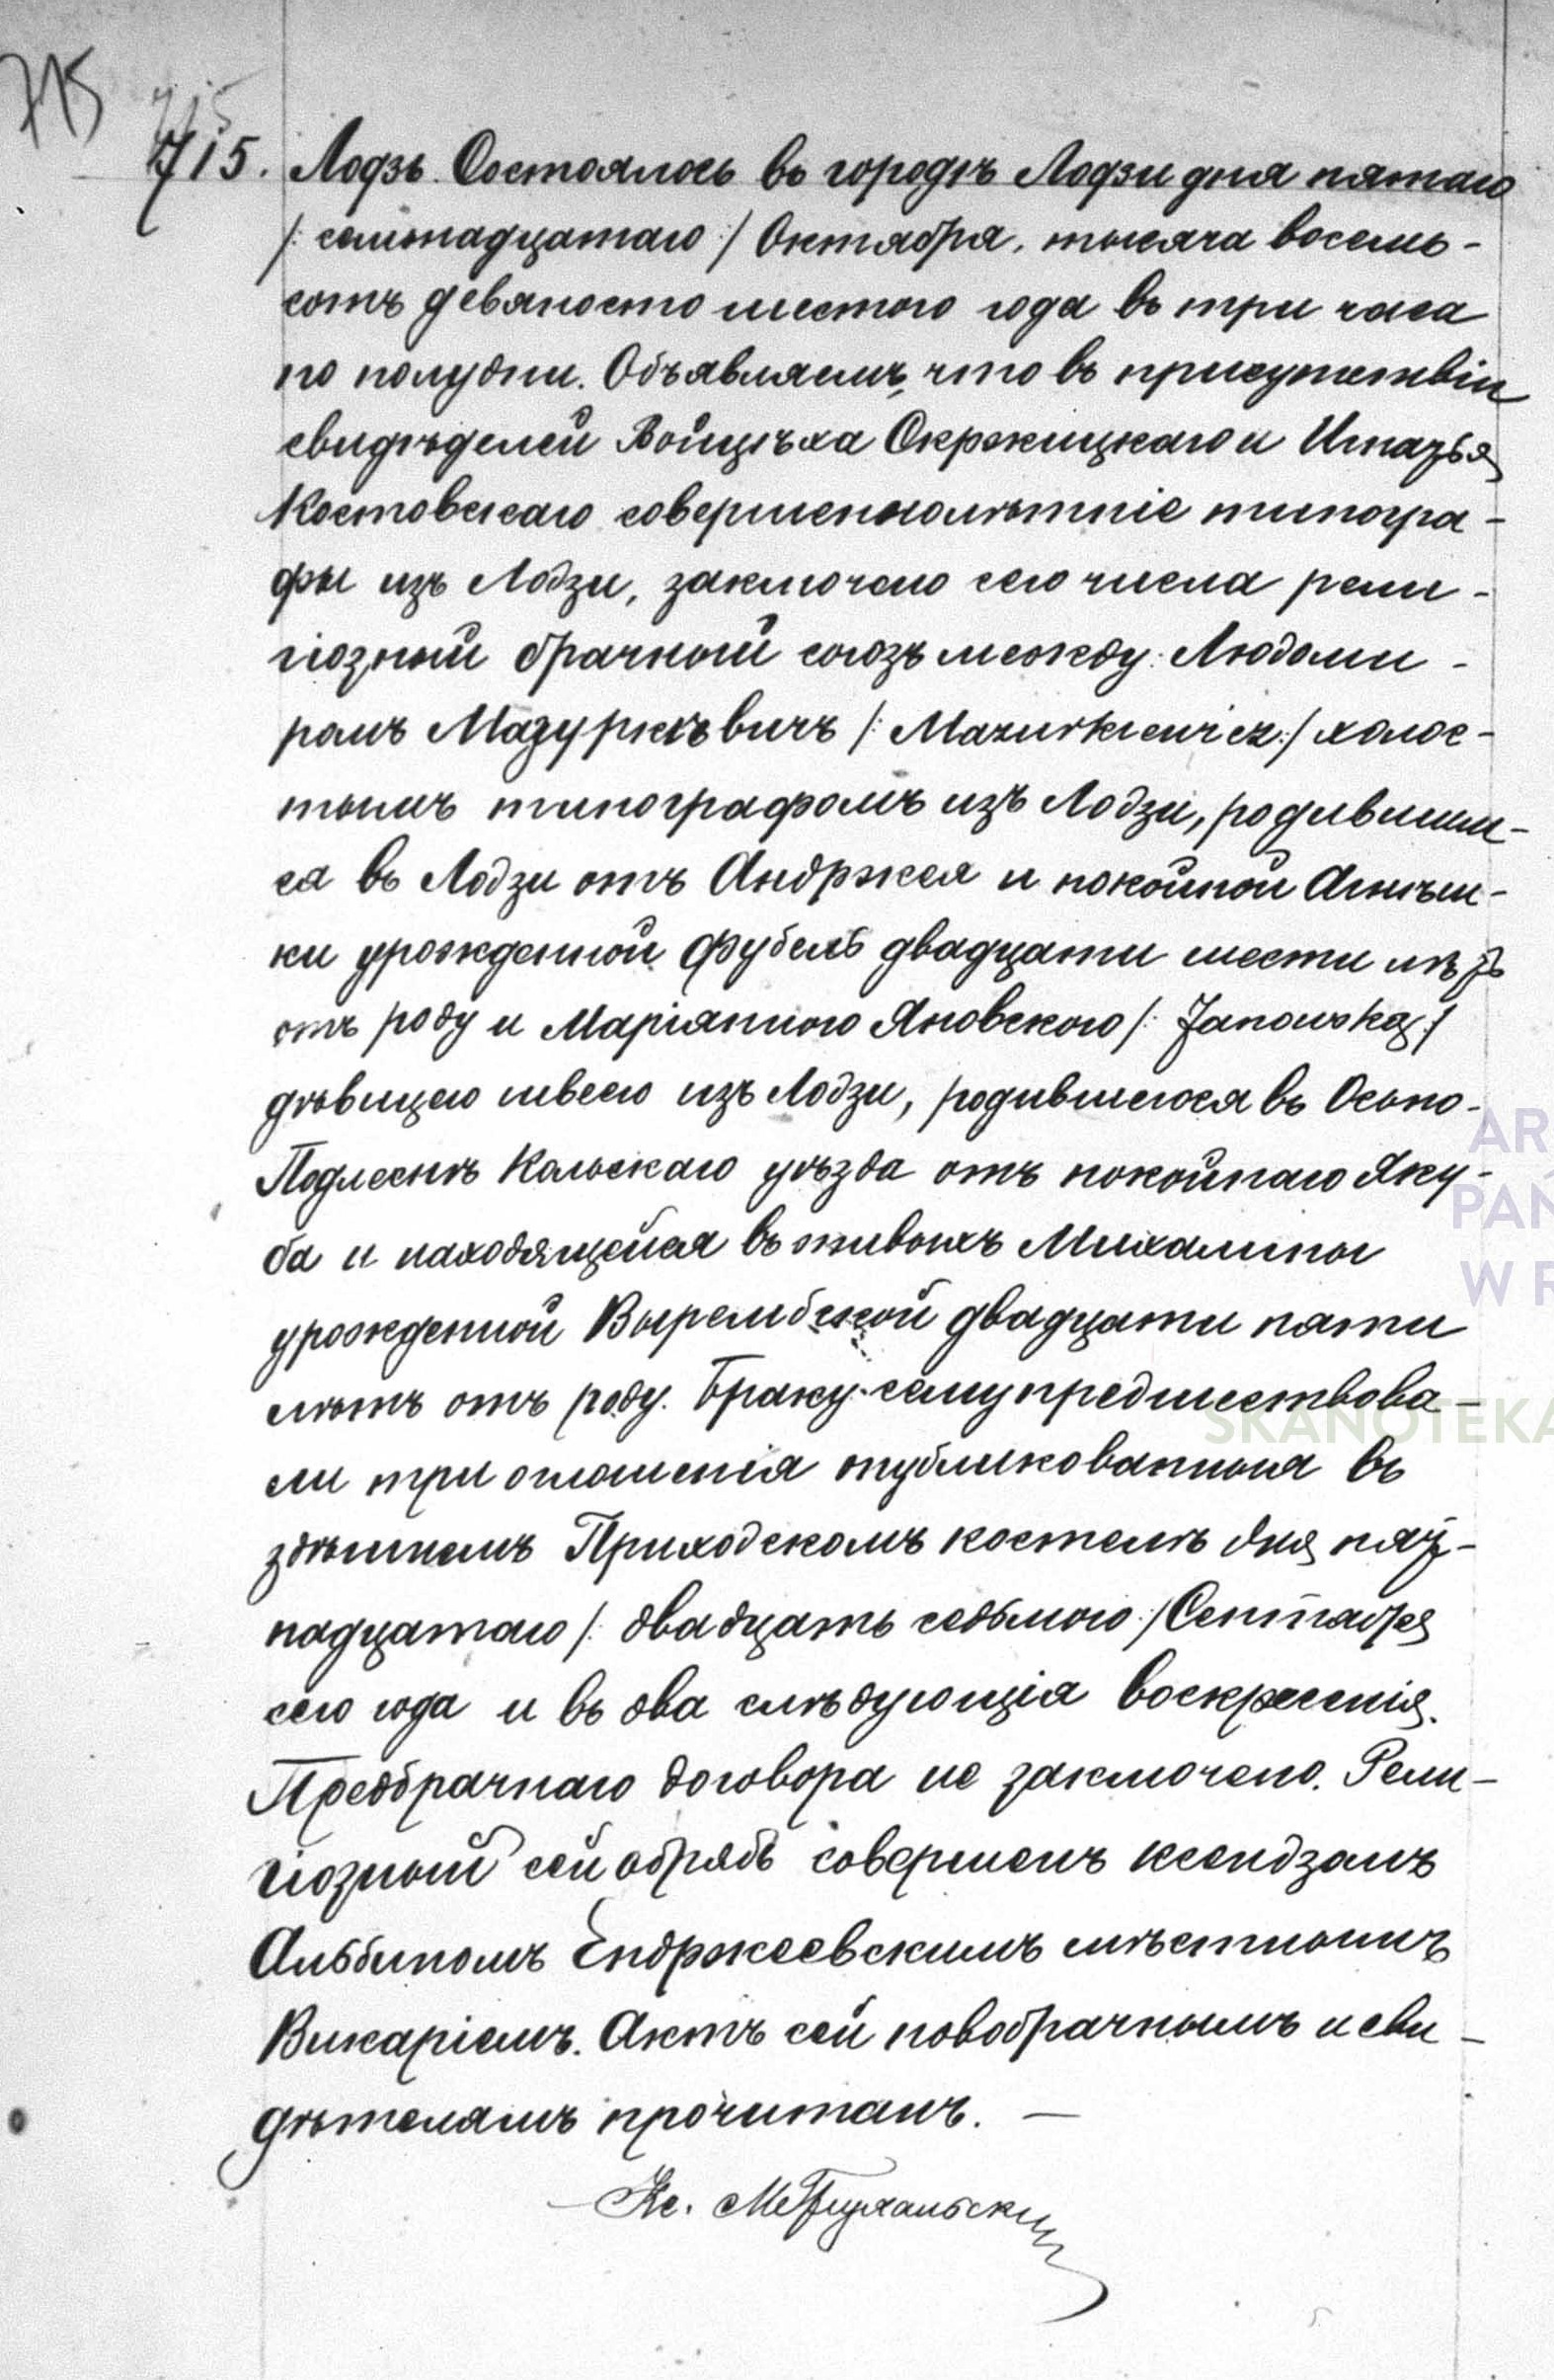 715
715
715. Лодзь. Состоялось въ городѣ Лодзи дня пятаго
/: семьнадцатаго :/ Октября, тысяча восемь-
сотъ девяносто шестого года въ три часа
по полудни. Объявляемъ, что въ присутствіи
свидѣделей Войцѣха Окржицкаго и Игнатья
Костовскаго совершеннолѣтніе типогра-
фы изъ Лодзи, заключено сего числа рели-
гіозный брачный союзъ между: Людоми-
ромъ Мазуркѣвичъ /: Mazurkiewicz :/ холос-
тымъ типографомъ изъ Лодзи, родившим-
ся въ Лодзи отъ Андржея и покойной Агнѣш-
ки урожденной Фубель двадцати шести лѣтъ
отъ роду и Маріянною Яновскою /: Janowską :/
дѣвицею швеею изъ Лодзи, родившеюся въ Осыпо-
Подлеснѣ Кольскаго уѣзда отъ покойнаго Яку-
ба и находящейся въ живыхъ Михалины
урожденной Вырембской двадцати пяти
лѣтъ отъ роду. Браку сему предшествова-
ли три оглошенія публикованныя въ
здѣшнемъ Приходскомъ костелѣ дня пят-
надцатаго /: двадцать седьмого :/ Сентября
сего года и въ два слѣдующія воскресенія.
Предбрачнаго договора не заключено. Рели-
гіозный сей обрядъ совершенъ ксендзомъ
Альбиномъ Ендржеевскимъ мѣстнымъ
Викаріемъ. Актъ сей новобрачнымъ и сви-
дѣтелямъ прочитанъ. —
Кс.
AR
PAŃ
W P
SKANOTEKA